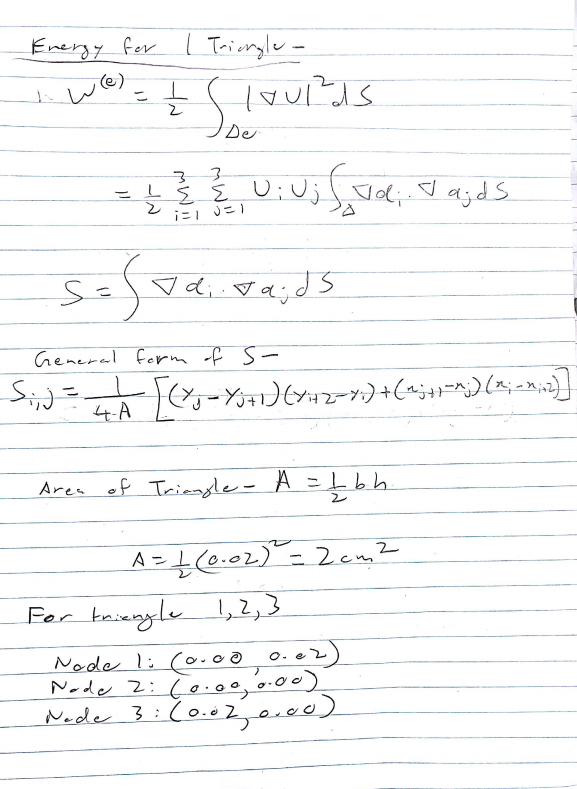 Energy for 1 Triangle -
W^(e) = 1/2 ∫_Δe |∇U|² dS
= 1/2 Σ_{i=1}^{3} Σ_{j=1}^{3} U_i U_j ∫_Δ ∇α_i · ∇α_j dS
S = ∫ ∇α_i · ∇α_j dS
General form of S -
S_i,j = 1/4A [(Y_j - Y_j+1)(Y_i+2 - Y_i) + (x_j+1 - x_j)(x_i - x_i+2)]
Area of Triangle - A = 1/2 bh
A = 1/2 (0.02)² = 2cm²
For triangle 1, 2, 3
Node 1: (0.00, 0.02)
Node 2: (0.00, 0.00)
Node 3: (0.02, 0.00)